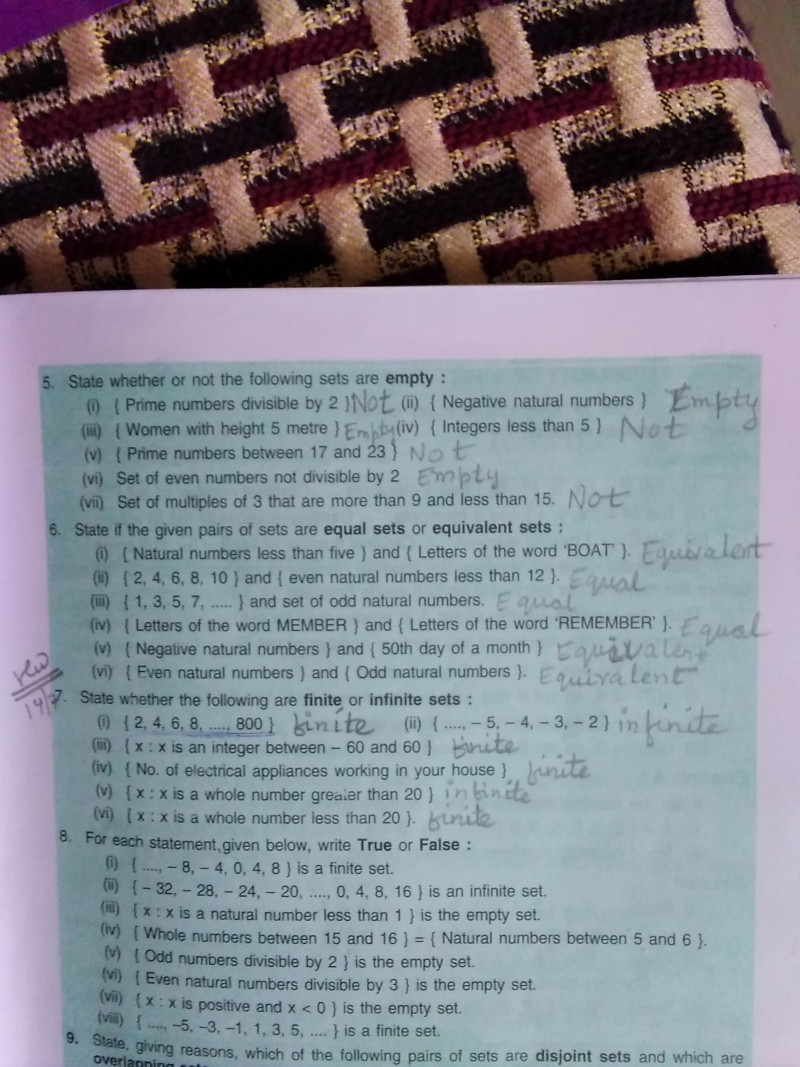 5. State whether or not the following sets are empty :
(i) { Prime numbers divisible by 2 } Not (ii) { Negative natural numbers } Empty
(iii) { Women with height 5 metre } Empty (iv) { Integers less than 5 } Not
(v) { Prime numbers between 17 and 23 } Not
(vi) Set of even numbers not divisible by 2 Empty
(vii) Set of multiples of 3 that are more than 9 and less than 15. Not
6. State if the given pairs of sets are equal sets or equivalent sets :
(i) { Natural numbers less than five } and { Letters of the word 'BOAT' }. Equivalent
(ii) { 2, 4, 6, 8, 10 } and { even natural numbers less than 12 }. Equal
(iii) { 1, 3, 5, 7, ..... } and set of odd natural numbers. Equal
(iv) { Letters of the word MEMBER } and { Letters of the word 'REMEMBER' }. Equal
(v) { Negative natural numbers } and { 50th day of a month } Equivalent
(vi) { Even natural numbers } and { Odd natural numbers }. Equivalent
HW
14/7
7. State whether the following are finite or infinite sets :
(i) { 2, 4, 6, 8, ...., 800 } finite (ii) { ...., – 5, – 4, – 3, – 2 } infinite
(iii) { x : x is an integer between – 60 and 60 } finite
(iv) { No. of electrical appliances working in your house } finite
(v) { x : x is a whole number greater than 20 } infinite
(vi) { x : x is a whole number less than 20 }. finite
8. For each statement, given below, write True or False :
(i) { ...., – 8, – 4, 0, 4, 8 } is a finite set.
(ii) { – 32, – 28, – 24, – 20, ...., 0, 4, 8, 16 } is an infinite set.
(iii) { x : x is a natural number less than 1 } is the empty set.
(iv) { Whole numbers between 15 and 16 } = { Natural numbers between 5 and 6 }.
(v) { Odd numbers divisible by 2 } is the empty set.
(vi) { Even natural numbers divisible by 3 } is the empty set.
(vii) { x : x is positive and x < 0 } is the empty set.
(viii) { ...., –5, –3, –1, 1, 3, 5, .... } is a finite set.
9. State, giving reasons, which of the following pairs of sets are disjoint sets and which are
overlapping sets